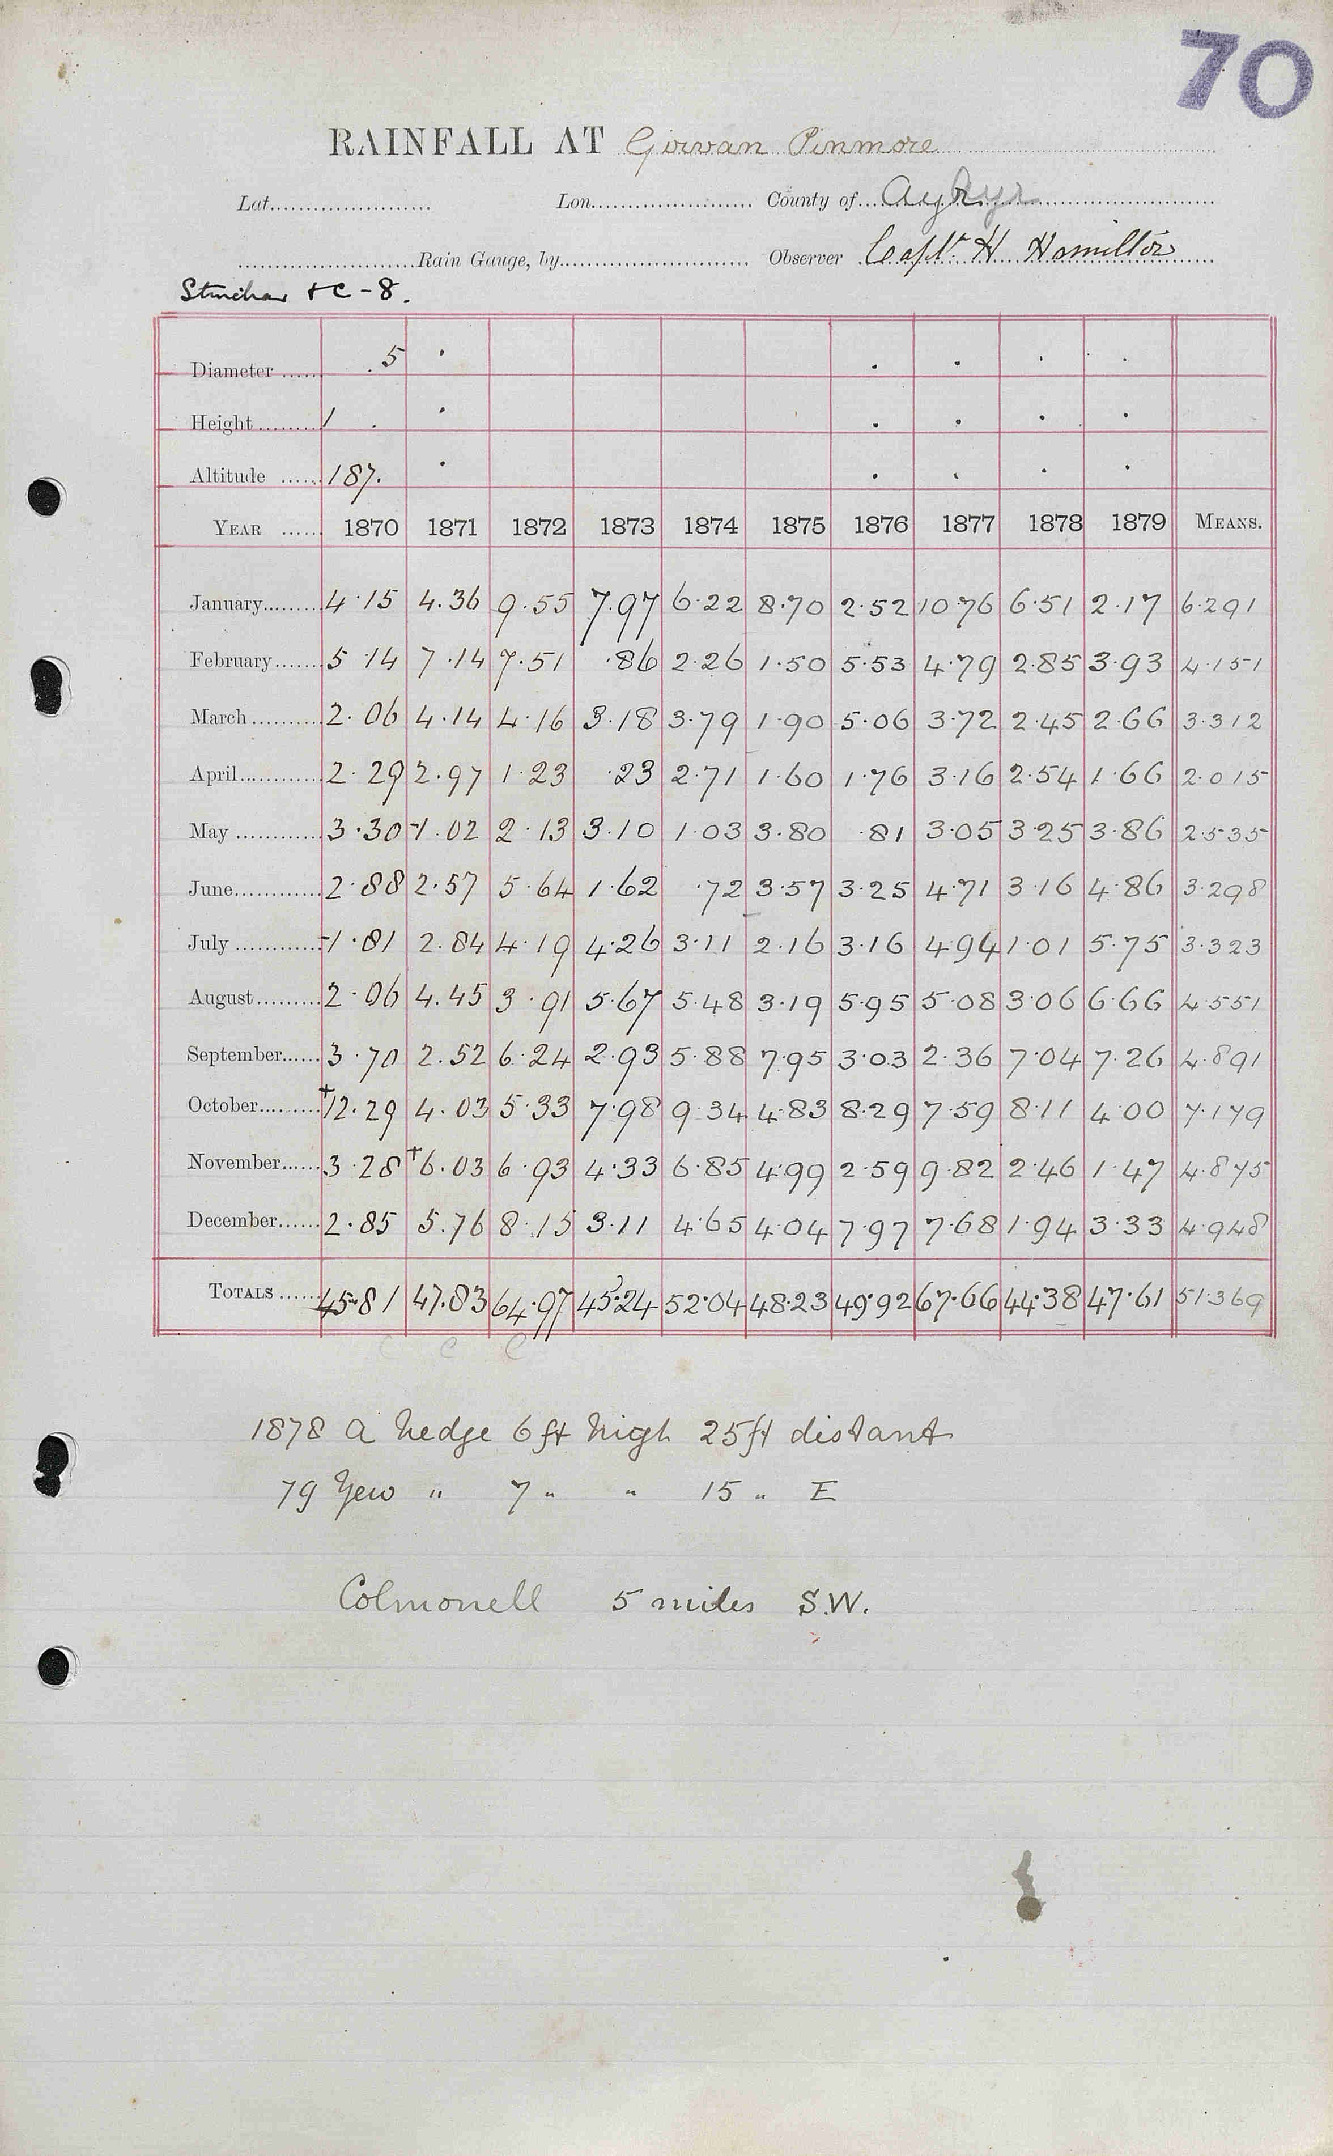 70
RAINFALL AT Girvan Pinmore
Lat. Lon. County of Ayr Ayr
Rain Gauge, by Observer Capt. H Hamilton
Stinchar & C - 8.
Diameter 5
Height 1
Altitude 187.
YEAR 1870 1871 1872 1873 1874 1875 1876 1877 1878 1879 MEANS.
January 4.15 4.36 9.55 7.97 6.22 8.70 2.52 10.76 6.51 2.17 6.291
February 5.14 7.14 7.51 .86 2.26 1.50 5.53 4.79 2.85 3.93 4.151
March 2.06 4.14 4.16 3.18 3.79 1.90 5.06 3.72 2.45 2.66 3.312
April 2.29 2.97 1.23 .23 2.71 1.60 1.76 3.16 2.54 1.66 2.015
May 3.30 1.02 2.13 3.10 1.03 3.80 .81 3.05 3.25 3.86 2.535
June 2.88 2.57 5.64 1.62 .72 3.57 3.25 4.71 3.16 4.86 3.298
July 1.81 2.84 4.19 4.26 3.11 2.16 3.16 4.94 1.01 5.75 3.323
August 2.06 4.45 3.91 5.67 5.48 3.19 5.95 5.08 3.06 6.66 4.551
September 3.70 2.52 6.24 2.93 5.88 7.95 3.03 2.36 7.04 7.26 4.891
October +12.29 4.03 5.33 7.98 9.34 4.83 8.29 7.59 8.11 4.00 7.179
November 3.28 +6.03 6.93 4.33 6.85 4.99 2.59 9.82 2.46 1.47 4.875
December 2.85 5.76 8.15 3.11 4.65 4.04 7.97 7.68 1.94 3.33 4.948
TOTALS 45.81 47.83 64.97 45.24 52.04 48.23 49.92 67.66 44.38 47.61 51.369
c c c
1878 a hedge 6 ft high 25 ft distant
79 Yew " 7 " " 15 " E
Colmonell 5 miles S.W.